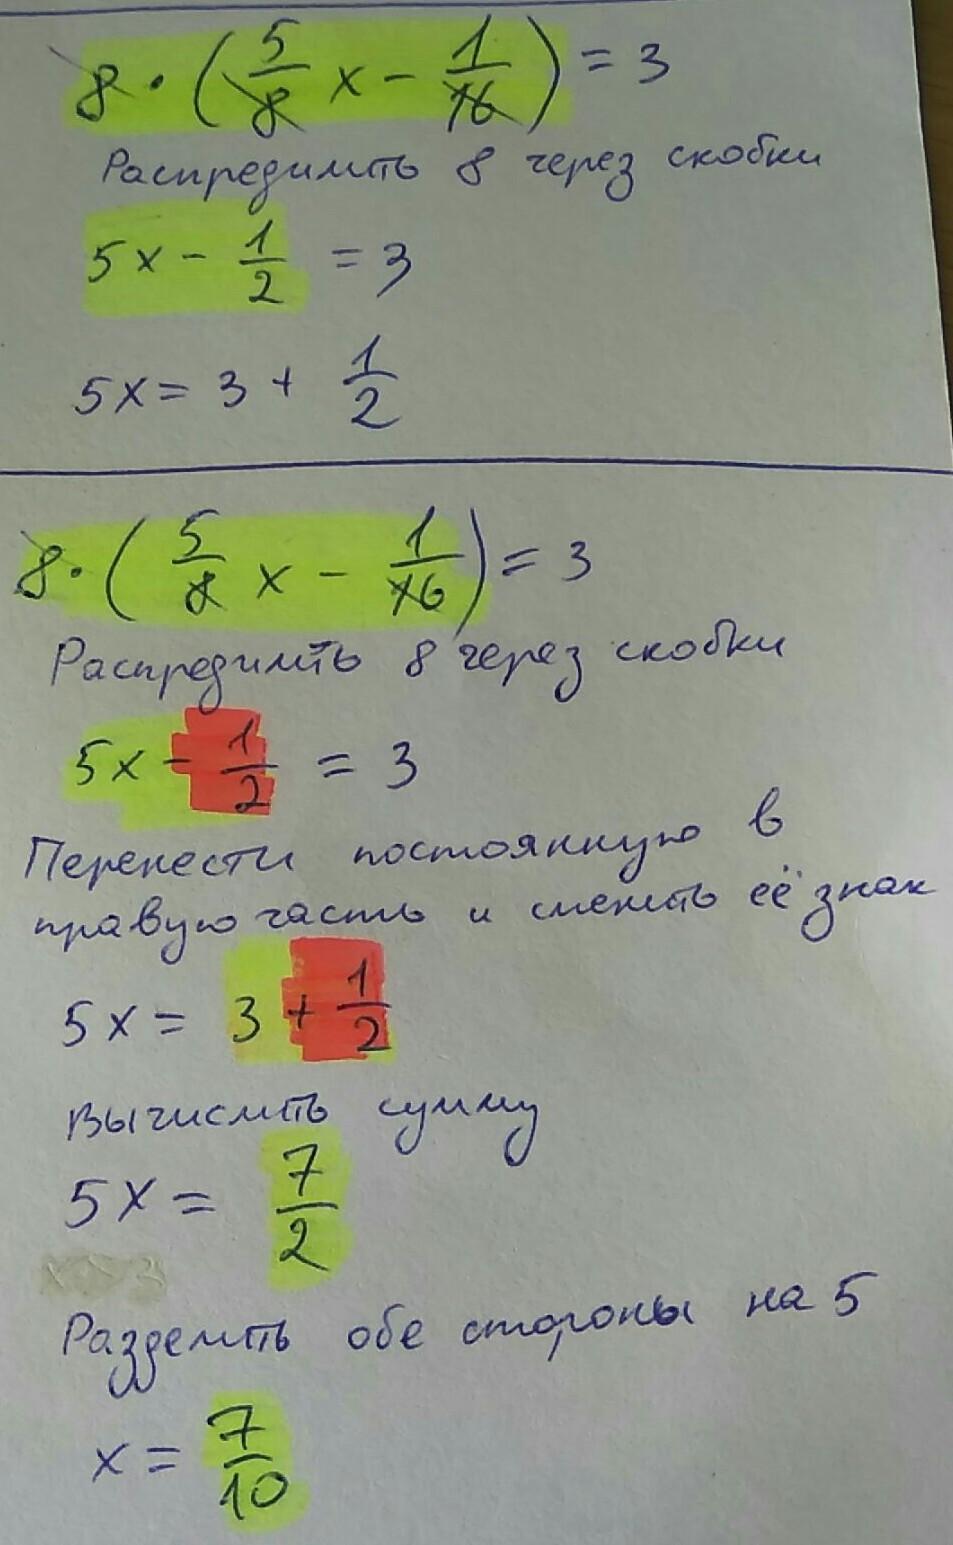 8 · (5/8 x - 1/16) = 3
Распредилить 8 через скобки
5x - 1/2 = 3
5x = 3 + 1/2
8 · (5/8 x - 1/16) = 3
Распредилить 8 через скобки
5x - 1/2 = 3
Перенести постоянную в
правую часть и сменить её знак
5x = 3 + 1/2
Вычислить сумму
5x = 7/2
Разделить обе стороны на 5
x = 7/10